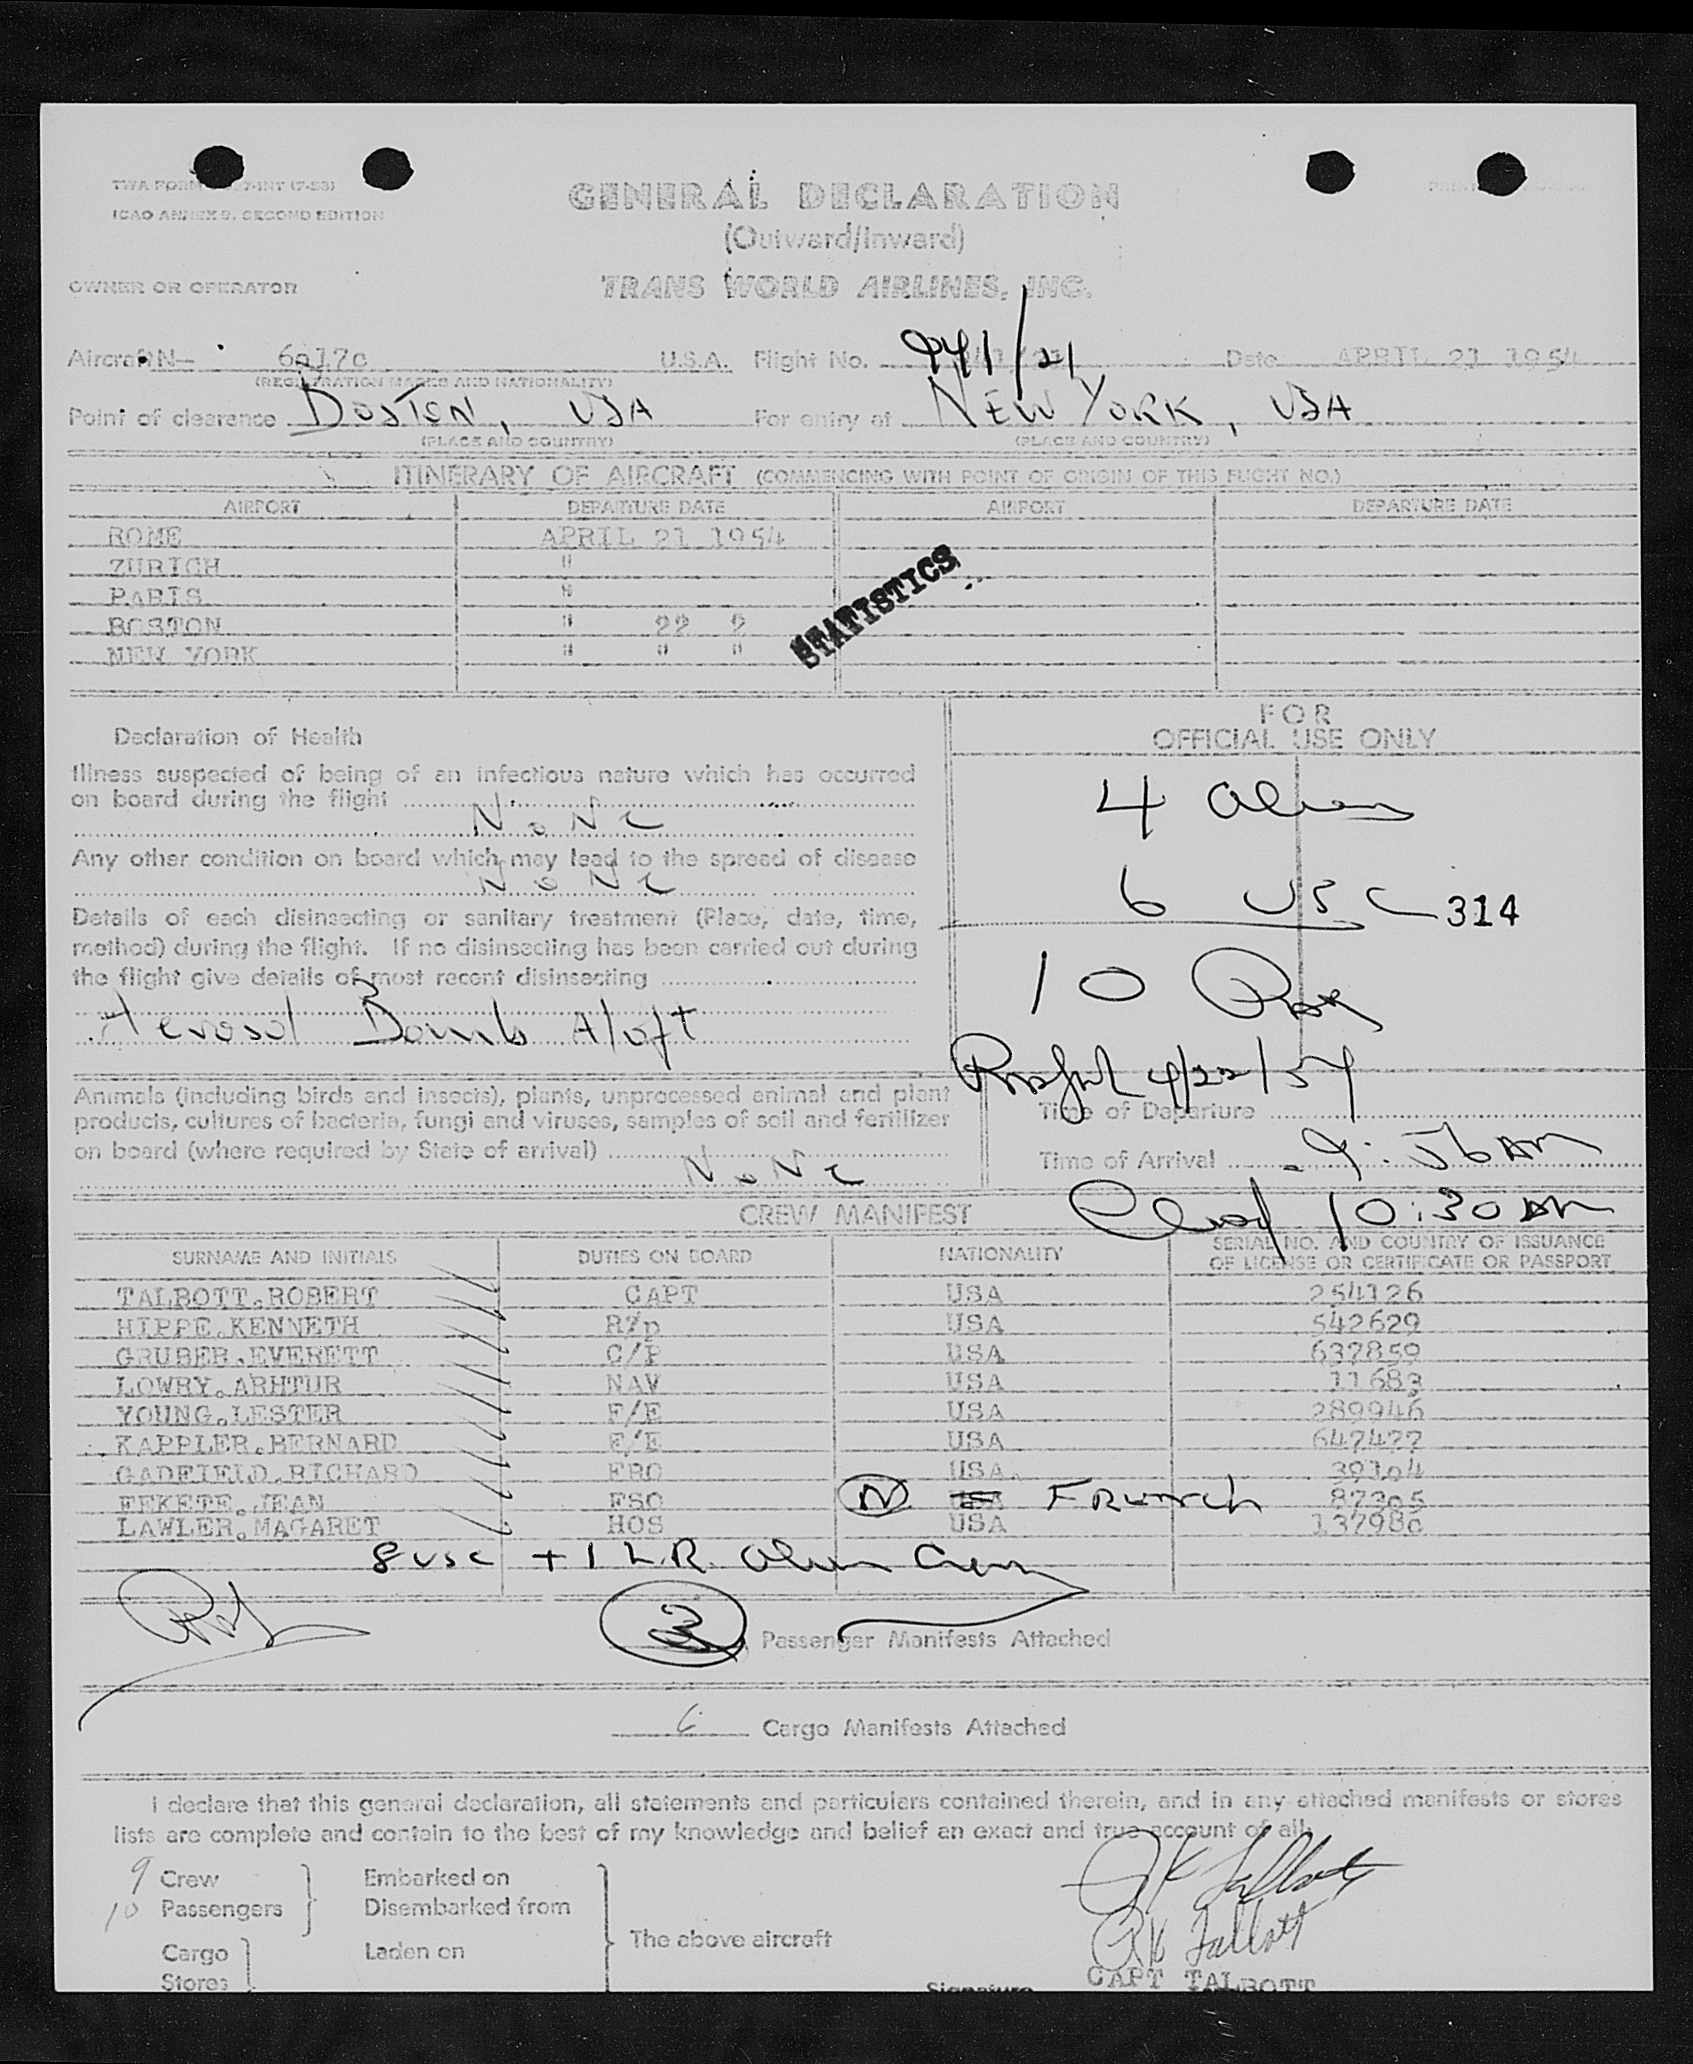 TWA FORM 7-INT (7-53)
ICAO ANNEX 9, SECOND EDITION
GENERAL DECLARATION
(Outward/Inward)
OWNER OR OPERATOR TRANS WORLD AIRLINES, INC.
Aircraft N— 6017c U.S.A. Flight No. 941/21 Date APRIL 21 1954
(REGISTRATION MARKS AND NATIONALITY)
Point of clearance BOSTON, USA For entry at NEW YORK, USA
(PLACE AND COUNTRY) (PLACE AND COUNTRY)
ITINERARY OF AIRCRAFT (COMMENCING WITH POINT OF ORIGIN OF THIS FLIGHT NO.)
AIRPORT DEPARTURE DATE AIRPORT DEPARTURE DATE
ROME APRIL 21 1954
ZURICH "
PARIS "
BOSTON " 22 "
NEW YORK " " "
STATISTICS
FOR
OFFICIAL USE ONLY
4 Aliens
6 USC
314
10 Pax
4/22/54
Time of Departure
Time of Arrival 9:56 AM
Clear 10:30 AM
Declaration of Health
Illness suspected of being of an infectious nature which has occurred
on board during the flight
None
Any other condition on board which may lead to the spread of disease
None
Details of each disinsecting or sanitary treatment (Place, date, time,
method) during the flight. If no disinsecting has been carried out during
the flight give details of most recent disinsecting
Aerosol Bomb Aloft
Animals (including birds and insects), plants, unprocessed animal and plant
products, cultures of bacteria, fungi and viruses, samples of soil and fertilizer
on board (where required by State of arrival)
None
CREW MANIFEST
SURNAME AND INITIALS DUTIES ON BOARD NATIONALITY SERIAL NO. AND COUNTRY OF ISSUANCE
OF LICENSE OR CERTIFICATE OR PASSPORT
TALBOTT.ROBERT CAPT USA 254126
HIPPE.KENNETH R/p USA 542629
GRUBER.EVERETT C/P USA 637859
LOWRY.ARHTUR NAV USA 11683
YOUNG.LESTER F/E USA 289946
KAPPLER.BERNARD F/E USA 647477
GADFIELD.RICHARD FRO USA 39104
FEKETE.JEAN FSO N USA FRENCH 87305
LAWLER.MAGARET HOS USA 137980
8 USC + 1 L.R. Alien Crew
3 Passenger Manifests Attached
6 Cargo Manifests Attached
I declare that this general declaration, all statements and particulars contained therein, and in any attached manifests or stores
lists are complete and contain to the best of my knowledge and belief an exact and true account of all:
9 Crew Embarked on
10 Passengers Disembarked from
The above aircraft
Cargo Laden on
Stores
RK Talbott
RK Talbott
CAPT TALBOTT
Signature